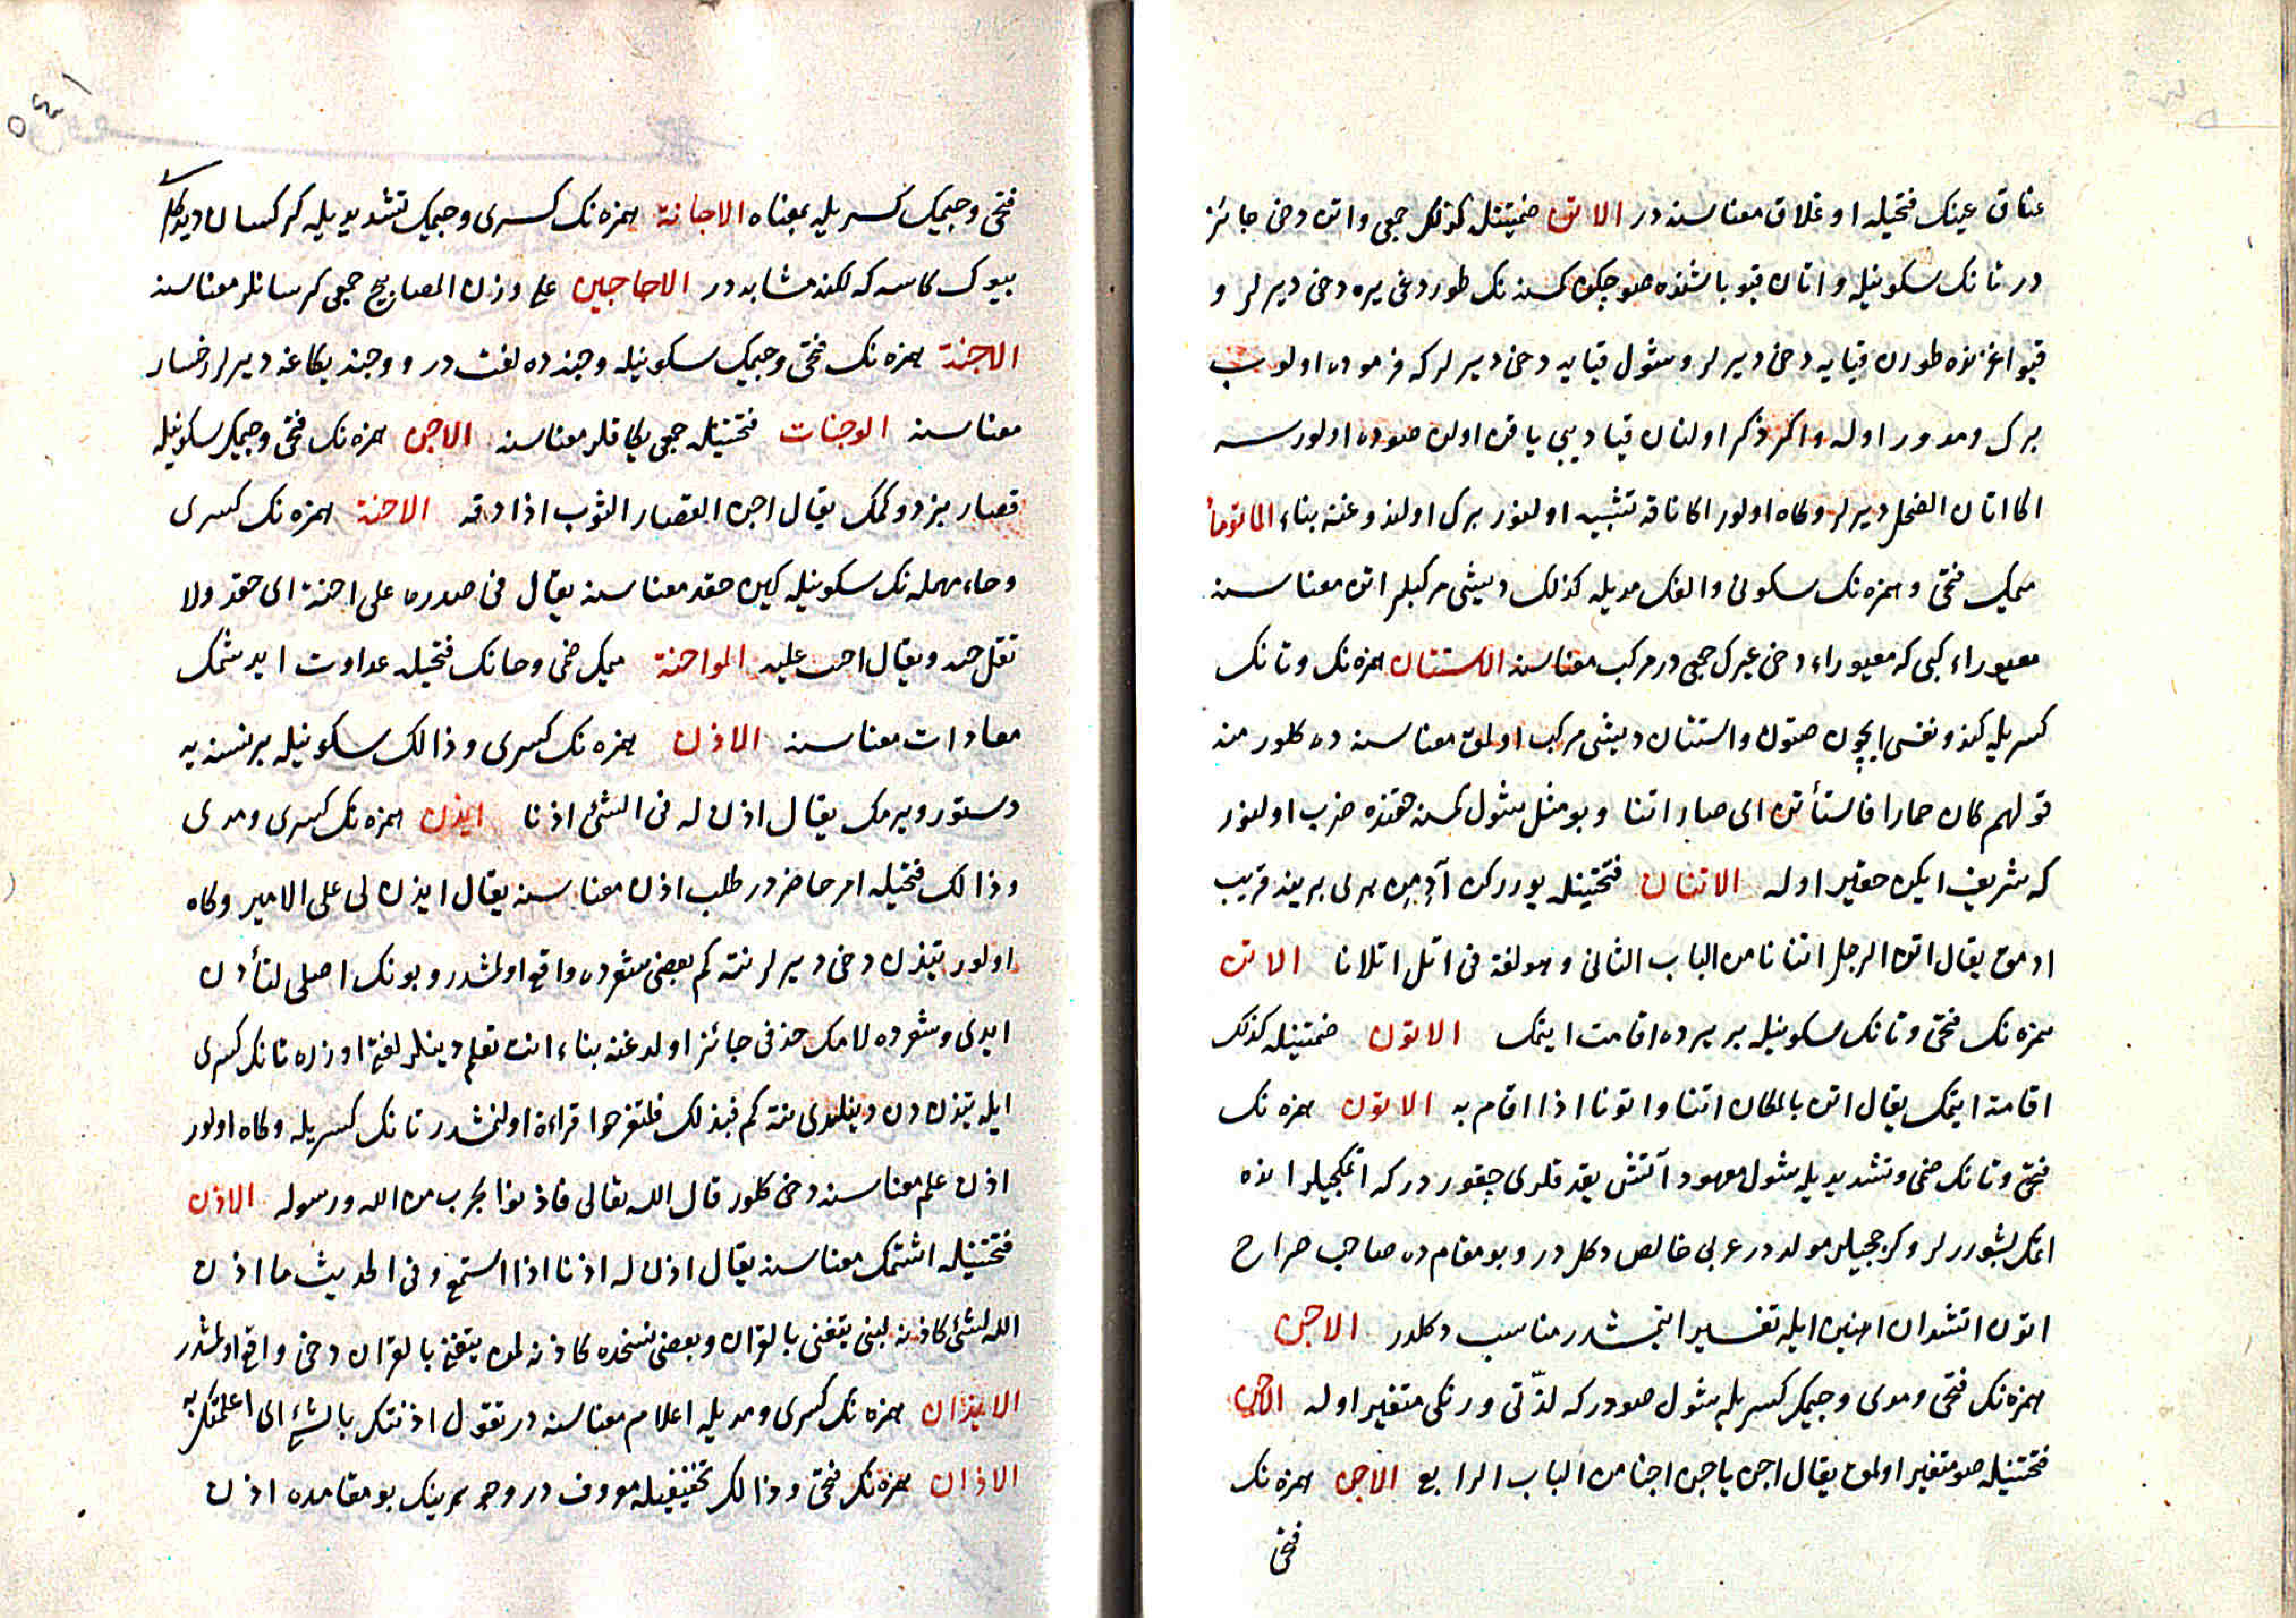 عناق عينك فتحيله اوغلاق معناسنه در الاتن ضمتينله كذلك جمعى واتن دخى جائز
در تانك سكونيله واتان قيو باشنده صو چكن كمسنه نك طوردغى يره دخى ديرلر و
قيو اغزنده طورن قيايه دخى ديرلر وشول قيايه دخى ديرلر كه فرموده اولوب
برك ومدور اوله واكر ذكر اولنان قيا ديبى ياقن اولن صوده اولورسه
اكا اتان الضحل ديرلر وكاه اولور اكا ناقه تشبيه اولنور برك اولدوغنه بناء الماتوناء
ميمك فتحى وهمزه نك سكونى والفك مديله كذلك ديشى مركبلر اتن معناسنه
معيوراء كبى كه معيوراء دخى عيرك جمعى در مركب معناسنه الاستتان همزه نك وتانك
كسريله كندو نفسى ايچون صتون واستتان ديشى مركب اولمق معناسنه ده كلور منه
قولهم كان حمارا فاستأتن اى صار اتنا وبو مثل شول كمسنه حقنده ضرب اولنور
كه شريف ايكن حقير اوله الاتنان فتحتينله يورركن آديمن برى برينه قريب
ادمق يقال اتن الرجل اتنانا من الباب الثانى وهو لغة فى اتل اتلانا الاتن
همزه نك فتحى وتانك سكونيله بر يرده اقامت ايتمك الاتون ضمتينله كذلك
اقامة ايتمك يقال اتن بالمكان اتنا واتونا اذا اقام به الاتون همزه نك
فتحى وتانك ضمى وتشديديله شول معهود آتش يقدقلرى چقور در كه اتمكجيلر انده
اتمك بشوررلر وكرجيلر مولد در عربى خالص دكلدر وبو مقامده صاحب صراح
اتون اتشدان اهنين ايله تفسير ايتمشدر مناسب دكلدر الاجن
همزه نك فتحى ومدى وجيمك كسريله شول صودر كه لذتى ورنكى متغير اوله الاجن
فتحتينله صو متغير اولمق يقال اجن ياجن اجنا من الباب الرابع الاجن همزه نك
فتحى
فتحى وجيمك كسريله بمعناه الاجانة همزه نك كسرى وجيمك تشديديله كرسان ديدكلرى
بيوك كاسه كه لكنه مشابه در الاجاجين على وزن المصابيح جمعى كرسانلر معناسنه
الاجنة همزه نك فتحى وجيمك سكونيله وجنه ده لغت در ووجنه يكاغه ديرلر رخسار
معناسنه الوجنات فتحتينله جمعى يكاقلر معناسنه الاجن همزه نك فتحى وجيمك سكونيله
قصار بز دوكمك يقال اجن القصار الثوب اذا دقه الاحنة همزه نك كسرى
وحاء مهمله نك سكونيله كين حقد معناسنه يقال فى صدره على احنة اى حقد ولا
تقل حنه ويقال احن عليه المواحنة ميمك ضمى وحانك فتحيله عداوت ايدشمك
معادات معناسنه الاذن همزه نك كسرى وذالك سكونيله بر نسنه يه
دستور ويرمك يقال اذن له فى الشئ اذنا ايذن همزه نك كسرى ومدى
وذالك فتحيله امر حاضر در طلب اذن معناسنه يقال ايذن لى على الامير وكاه
اولور تيذن دخى ديرلر نته كم بعضى شعرده واقع اولمشدر وبونك اصلى لتأذن
ايدى وشعرده لامك حذفى جائز اولدغنه بناء انت تعلم دينلر لغتى اوزره تانك كسرى
ايله تيذن دن دينلدى نته كم فبذلك فلتفرحوا قراءة اولنمشدر تانك كسريله وكاه اولور
اذن علم معناسنه دخى كلور قال الله تعالى فاذنوا بحرب من الله ورسوله الاذن
فتحتينله اشتمك معناسنه يقال اذن له اذنا اذا استمع وفى الحديث ما اذن
الله لشئ كاذنه لنبى يتغنى بالقران وبعضى نسخه ده كاذنه لمن يتغنى بالقران دخى واقع اولمشدر
الايذان همزه نك كسرى ومديله اعلام معناسنه در تقول اذنتك بالشئ اى اعلمتك به
الاذان همزه نك فتحى وذالك تخفيفيله معروف در وجوهرينك بو مقامده اذن